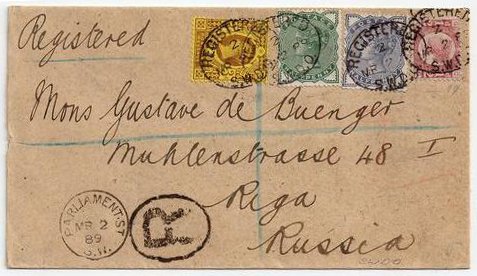 Registered
REGISTERED
REGISTERED
REGISTERED
S.W.
Mons Gustave de Buenger
Muhlenstrasse 48 I
Riga
Russia
PARLIAMENT.ST
MR 2
89
S.W.
R